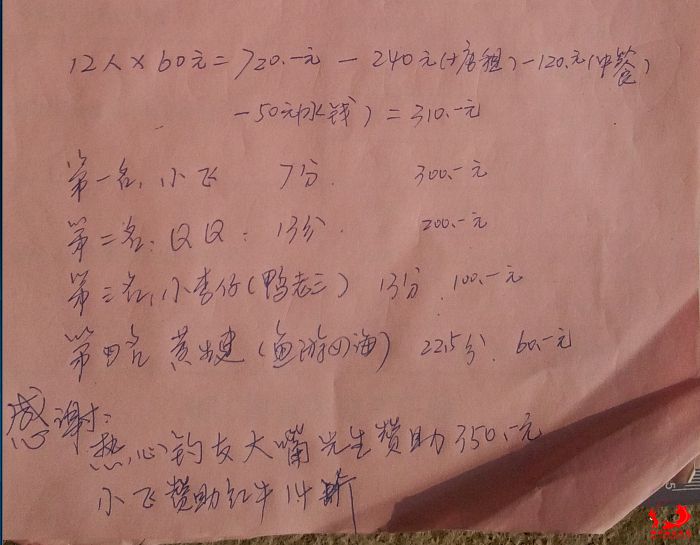 12人×60元=720.-元-240元(塘租)-120.元(中餐)
-50元(水钱)=310.-元
第一名:小飞 7分. 300.-元
第二名:QQ: 13分. 200.-元
第三名:小李仔(鸭老三) 13分. 100.-元
第四名 黄建(鱼游四海) 22.5分. 60.-元
感谢:
热心钓友大嘴先生赞助350.-元
小飞赞助红牛1件